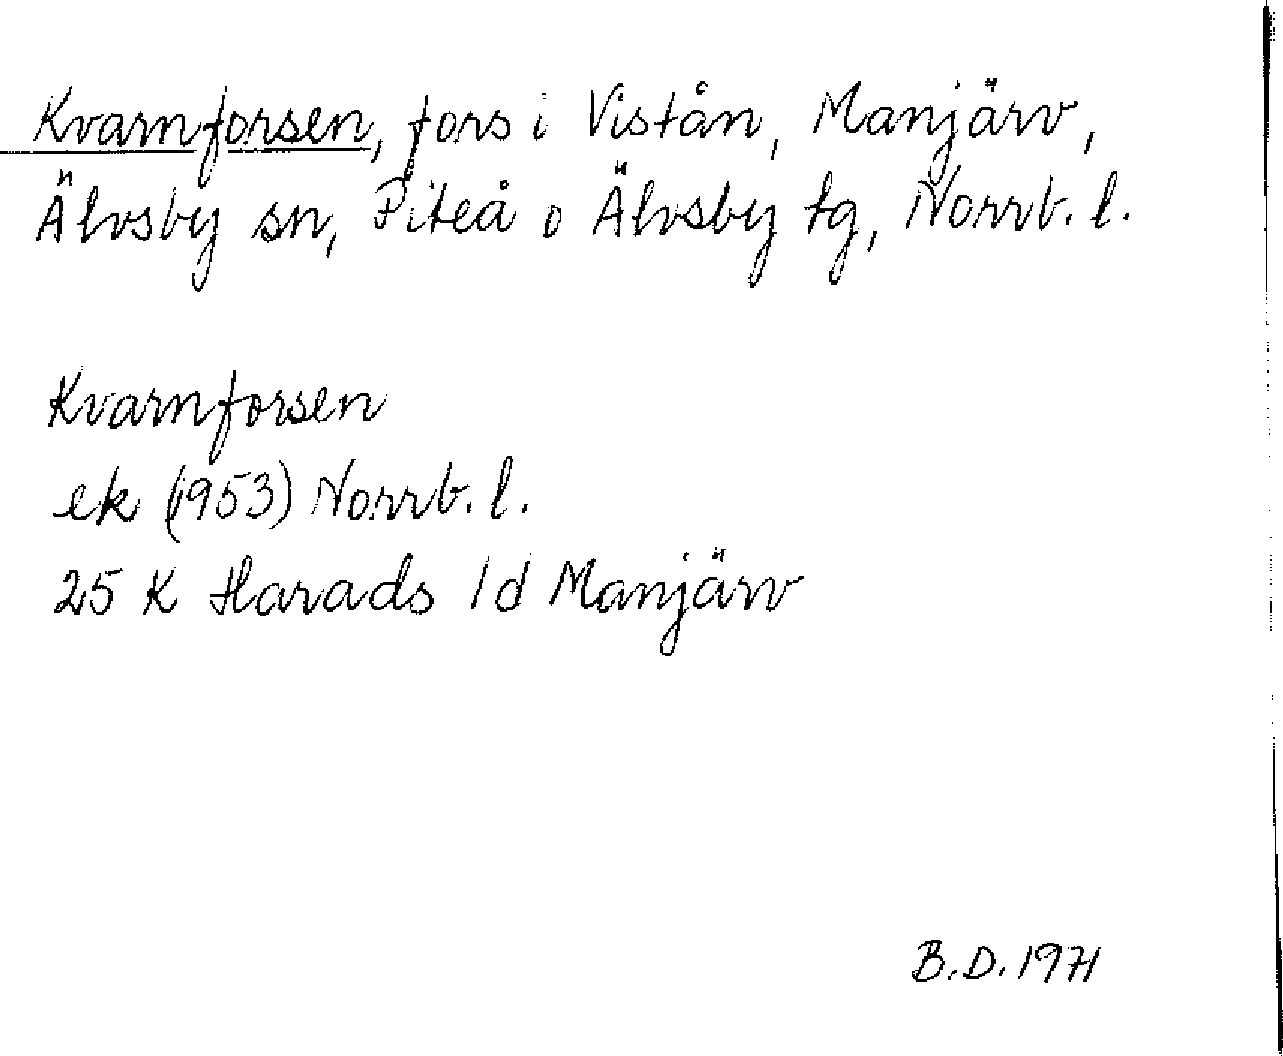 Kvarnforsen, fors i Vistån, Manjärv,
Älvsby sn, Piteå o Älvsby tg, Norrb. l.
Kvarnforsen
ek (1953) Norrb. l.
25 K Harads 1d Manjärv
B.D. 1971